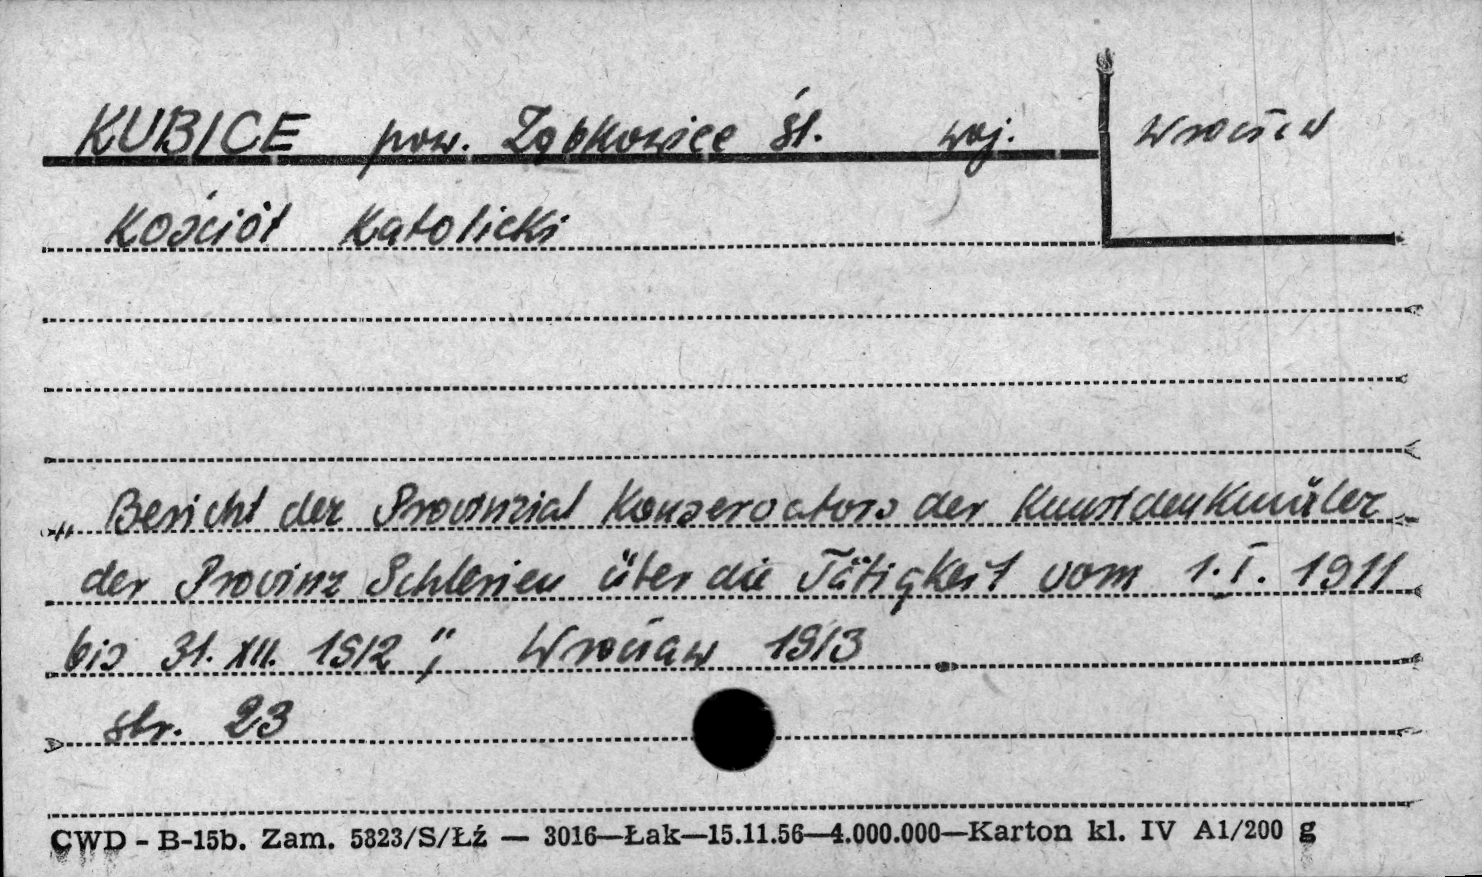 KUBICE pow. Ząbkowice Śl. woj. Wrocław
Kościół Katolicki
„Bericht der Provinzial Konservators der Kunstdenkmäler
der Provinz Schlesien über die Tätigkeit vom 1.I. 1911
bis 31. XII. 1912"; Wrocław 1913
str. 23
CWD - B-15b. Zam. 5823/S/Łź — 3016—Łak—15.11.56—4.000.000—Karton kl. IV A1/200 g